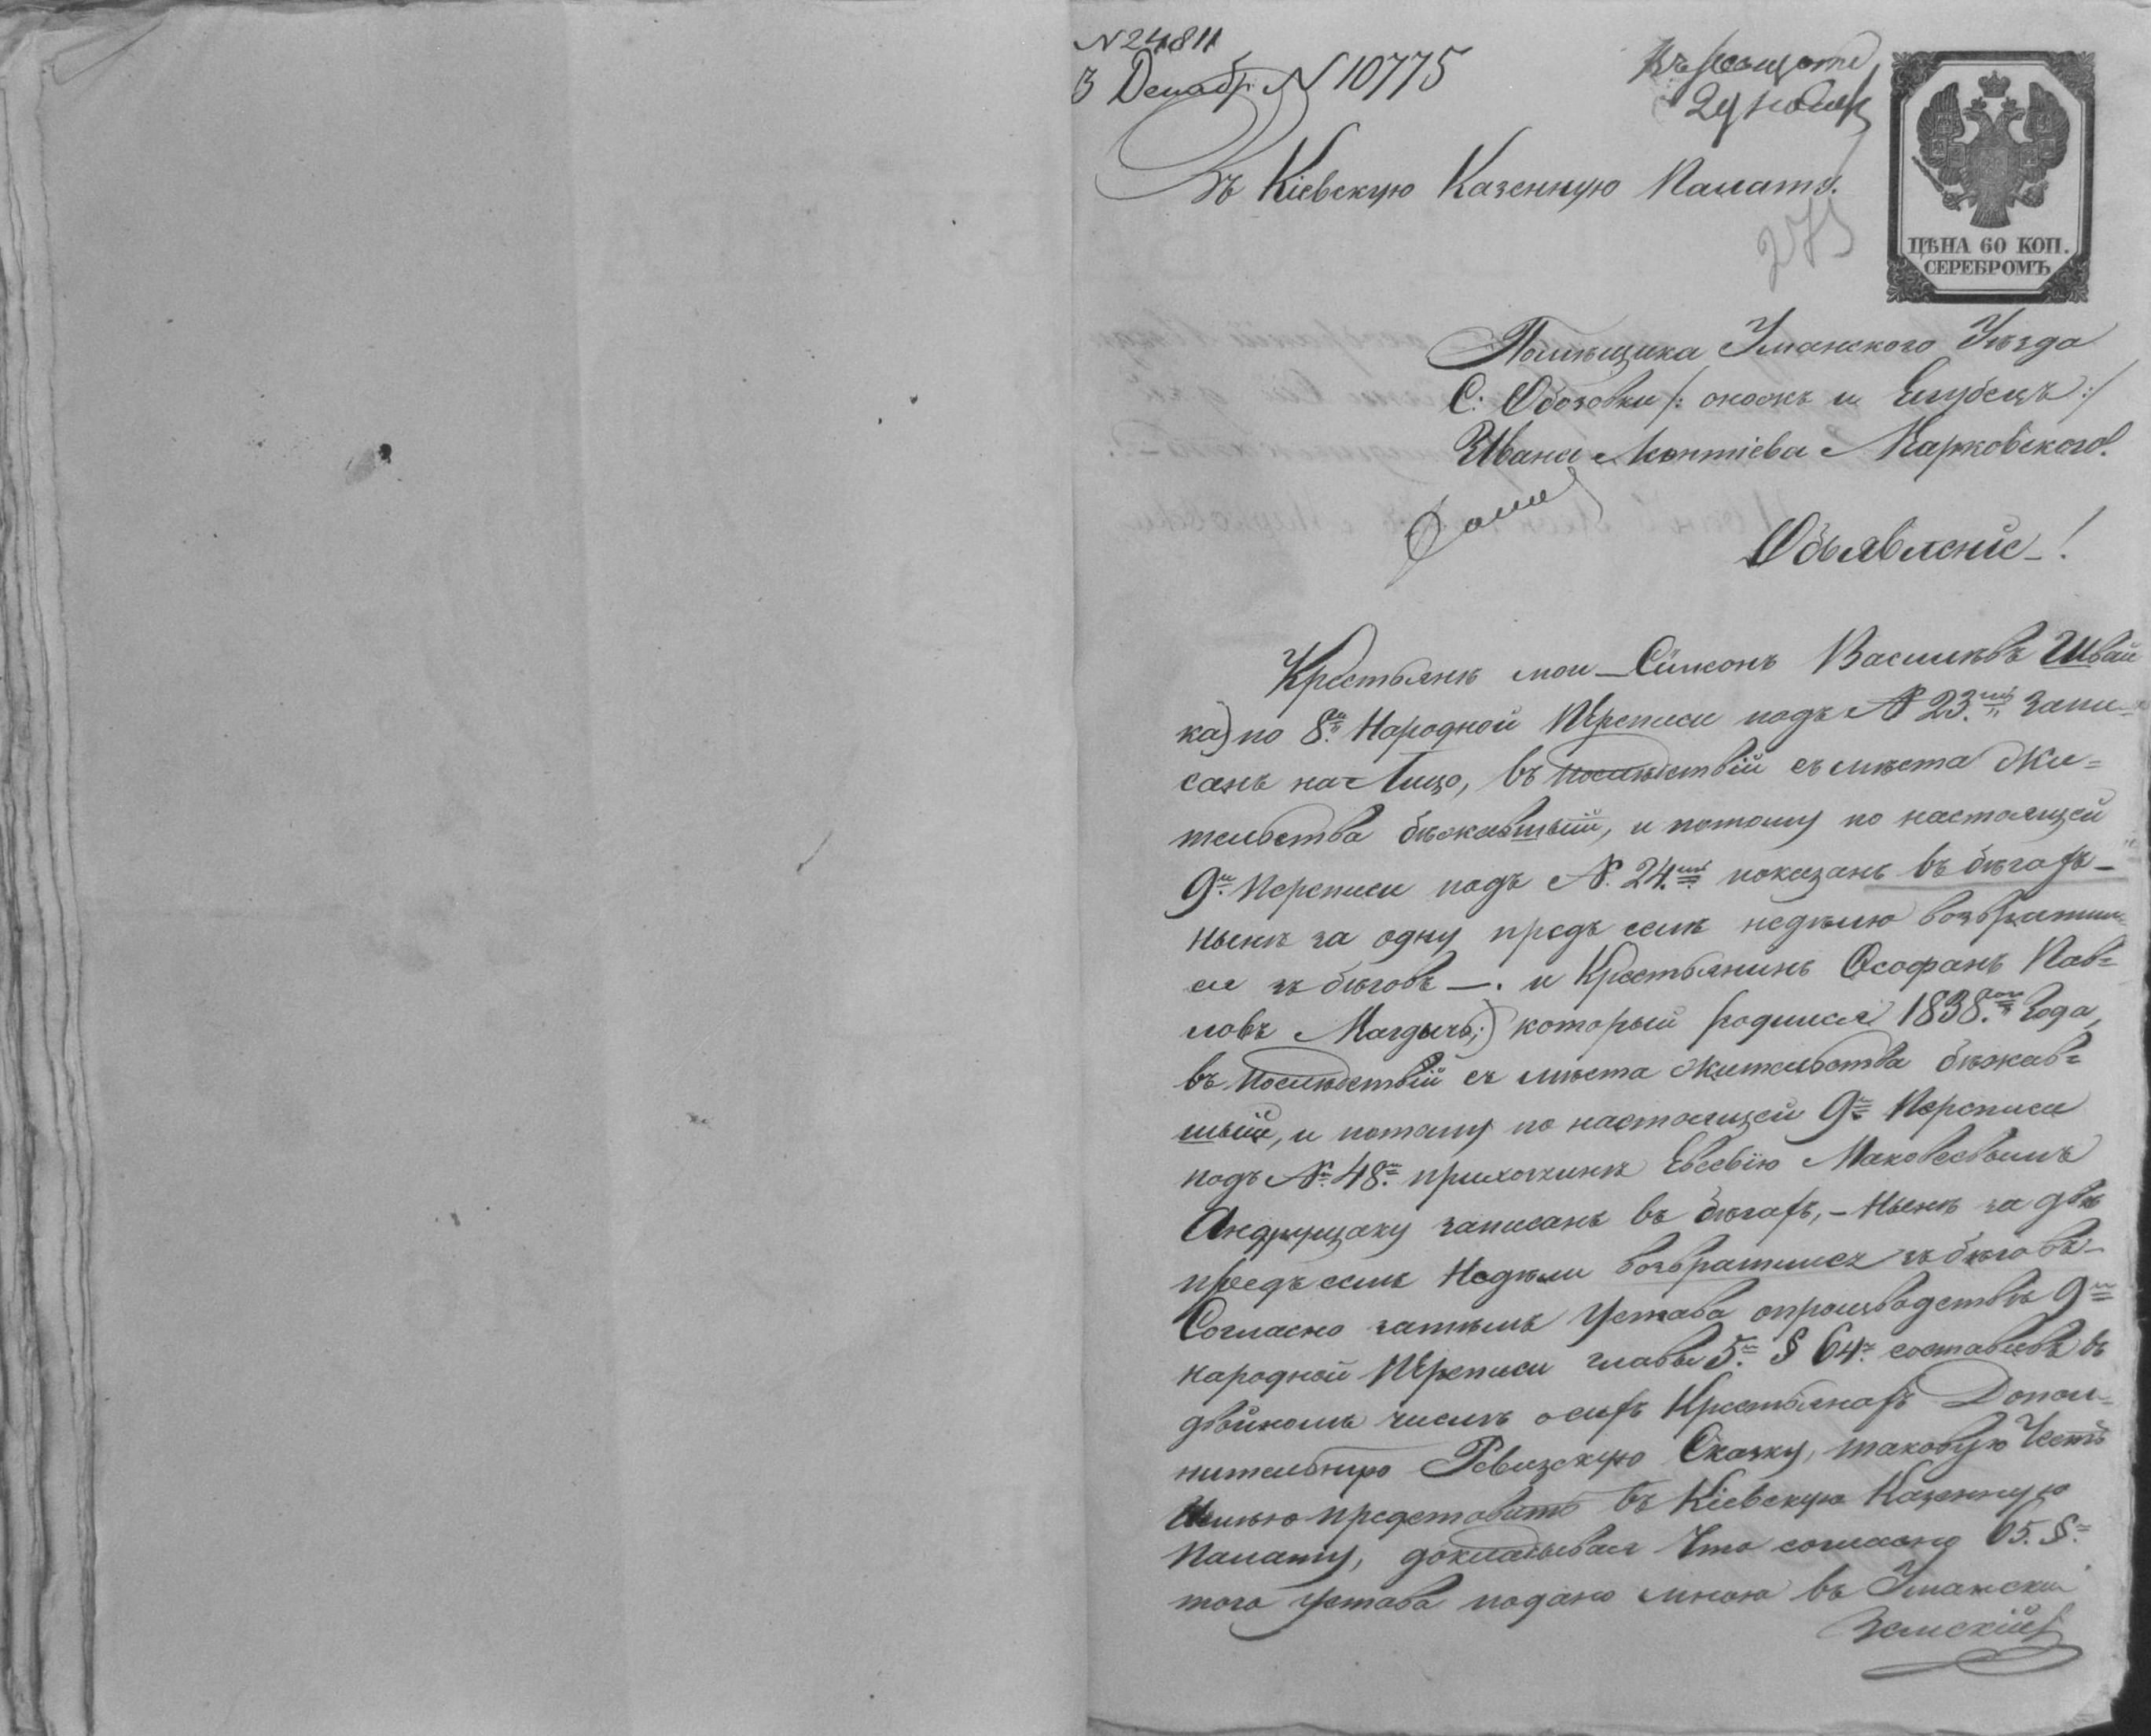 N 24811
3 Декабр. N 10775
29 ноябр
Въ Кіевскую Казенную Палату.
275
ЦѢНА 60 КОП.
СЕРЕБРОМЪ
Помѣщика Уманского Уѣзда
С: Обозовки /: оножъ и :/
Ивана Марковского.
Объявленіе !
Крестьянъ мои Симеонъ Васильевъ Швай
ка) по 8й Народной Переписи подъ N 23. запи-
санъ на лицо, въ последствіи съ мѣста жи=
тельства бѣжавшый, и потому по настоящей
9й Переписи подъ N. 24. показанъ въ бѣгахъ -
нынѣ за одну предъ семъ недѣлю возвратил
ся зъ бѣговъ —. и Крестьянинъ Ософанъ Пав=
ловъ Магдычъ;) который родился 1838. Года,
въ последствій съ мѣста жительства бѣжав=
шый, и потому по настоящей 9й Переписи
подъ N. 48. Евсевію
записанъ въ бѣгахъ, - нынѣ за двѣ
предъ семъ недѣли возвратился зъ бѣговъ -
Согласно затѣмъ Устава опроизводствѣ 9й
народной Переписи главы 5. § 64. составивъ въ
двойномъ числѣ осихъ Крестьянахъ Допол=
нительную Ревизскую Сказку, таковую Честь
имѣю представить въ Кіевскую Казенную
Палату, докладывая что согласно 65. §.
того устава подано мною въ Уманскій
Земскій